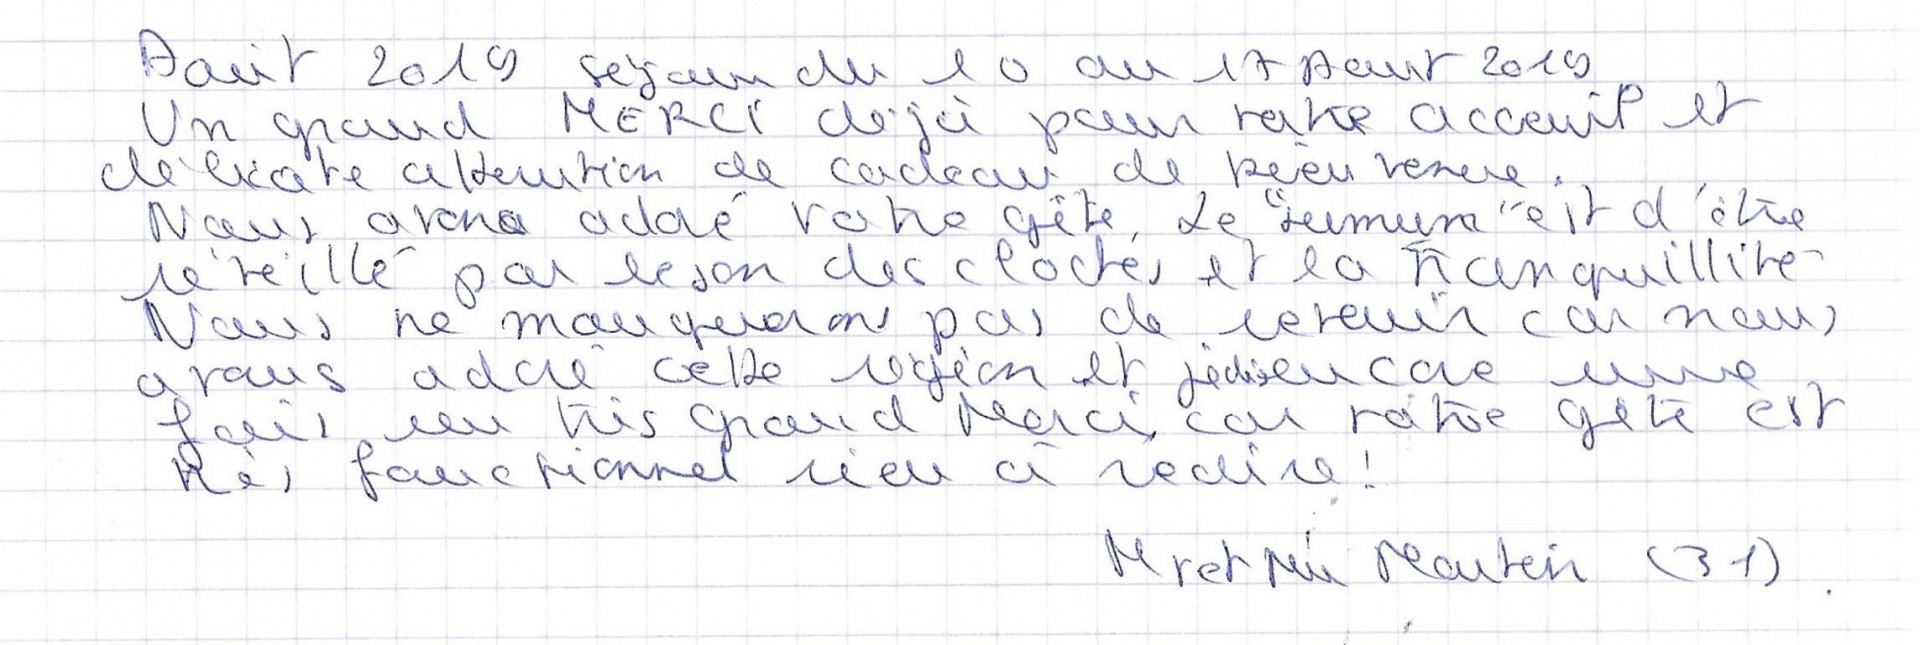 Août 2019 séjour du 10 au 17 Août 2019
Un grand MERCI déjà pour votre acceuil et
délicate attention de cadeau de bienvenue.
Nous avons adoré votre gîte. Le "summum" est d'être
réveillé par le son des cloches et la tranquillité
Nous ne manquerons pas de revenir car nous
avons adoré cette région et je dis encore une
fois un très grand Merci, car votre gîte est
très fonctionnel rien à redire !
Mr et Mme (31)